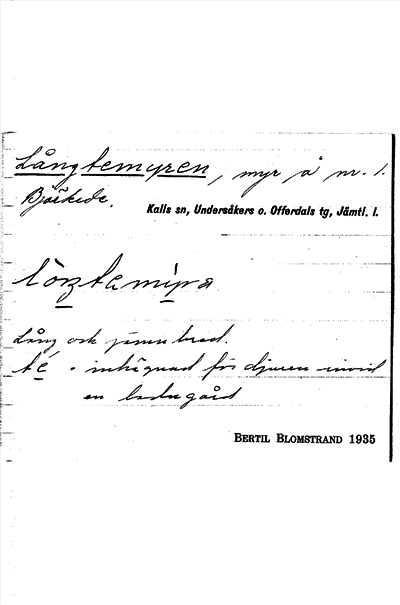 Långtemyren, myr å nr. 1.
Björkede.
Kalls sn, Undersåkers o. Offerdals tg, Jämtl. l.
Lång och jämnbred.
té = inhägnad för djuren invid
en ladugård
BERTIL BLOMSTRAND 1935